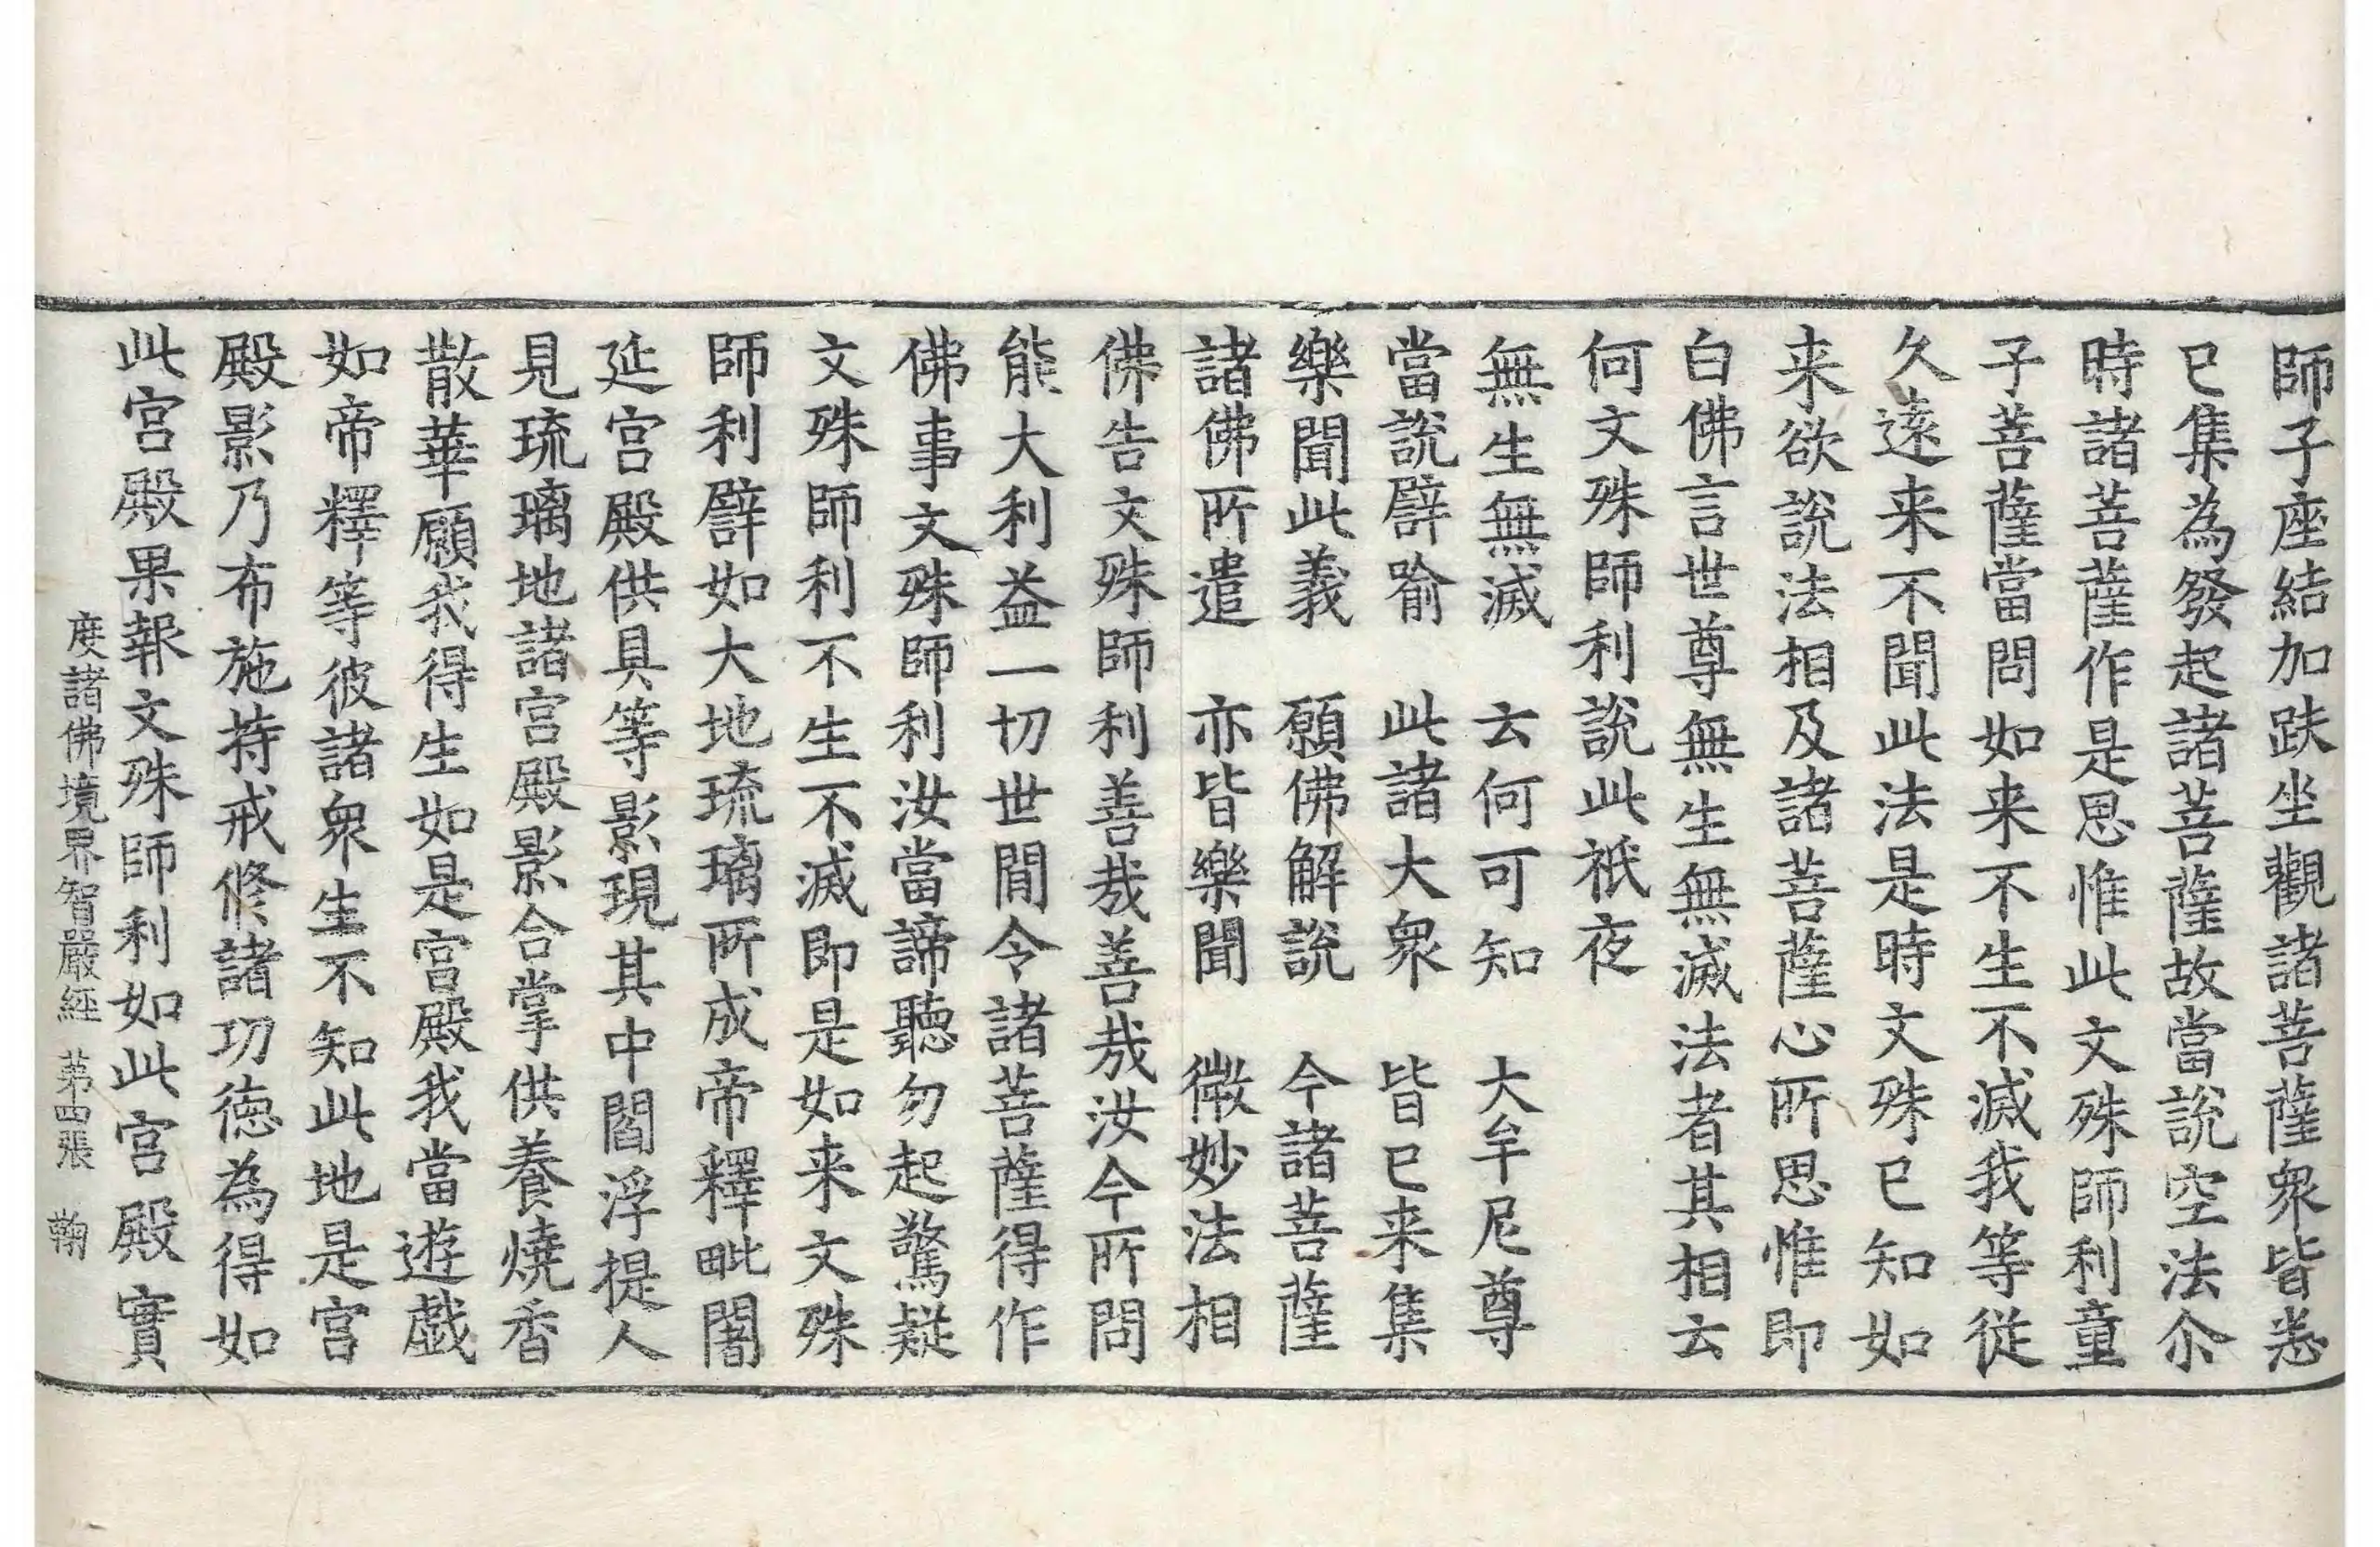 師子座結加趺坐觀諸菩薩衆皆悉
已集為發起諸菩薩故當說空法尒
時諸菩薩作是思惟此文殊師利童
子菩薩當問如来不生不滅我等從
久遠来不聞此法是時文殊已知如
来欲說法相及諸菩薩心所思惟即
白佛言世尊無生無滅法者其相云
何文殊師利說此祇夜
無生無滅　云何可知　大牟尼尊
當說譬喻　此諸大衆　皆已来集
樂聞此義　願佛解說　今諸菩薩
諸佛所遣　亦皆樂聞　微妙法相
佛告文殊師利善哉善哉汝今所問
能大利益一切世間令諸菩薩得作
佛事文殊師利汝當諦聽勿起驚疑
文殊師利不生不滅即是如来文殊
師利譬如大地琉璃所成帝釋毗闍
延宮殿供具等影現其中閻浮提人
見琉璃地諸宮殿影合掌供養燒香
散華願我得生如是宮殿我當遊戲
如帝釋等彼諸衆生不知此地是宮
殿影乃布施持戒修諸功德為得如
此宮殿果報文殊師利如此宮殿實
度諸佛境界智嚴經　苐四張　鞠